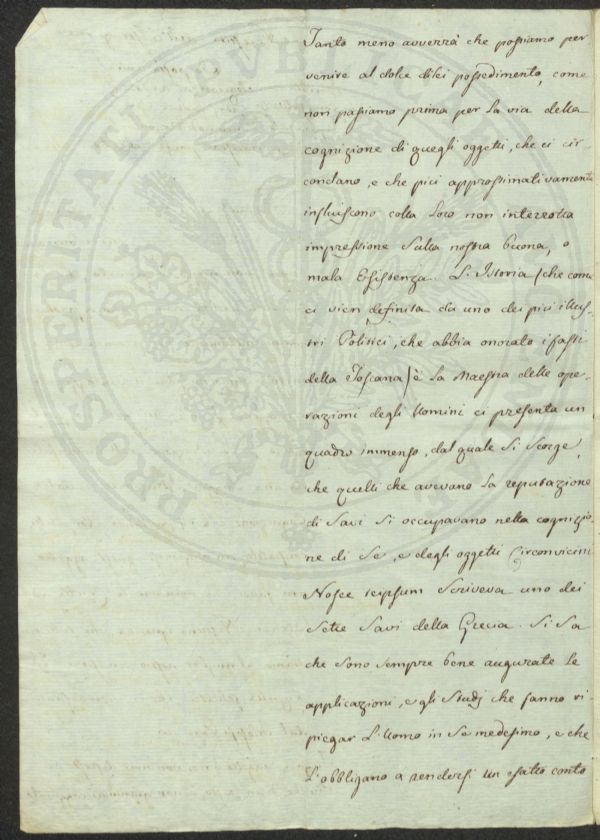 Tanto meno avverrà che possiamo per
venire al dolce di lei possedimento, come
non passiamo prima per la via della
cognizione di quegli oggetti, che ci cir-
condano, e che più approssimativamente
influiscono colla loro non interrotta
impressione sulla nostra buona, o
mala Esistenza. L'Istoria (che come
ci vien definita da uno dei più illus-
tri Politici, che abbia onorato i fasti
della Toscana) è la Maestra delle ope-
razioni degli Uomini ci presenta un
quadro immenso, dal quale si scorge,
che quelli che avevano la reputazione
di Savi si occupavano nella cognizio
ne di se, e degli oggetti Circonvicini
Nosce teipsum scriveva uno dei
Sette Savi della Grecia. Si sa
che sono sempre bene augurate le
applicazioni, e gli Studj che fanno ri-
piegar L'Uomo in se medesimo, e che
L'obbligano a rendersi un esatto conto
PROSPERITATI PUBLICAE